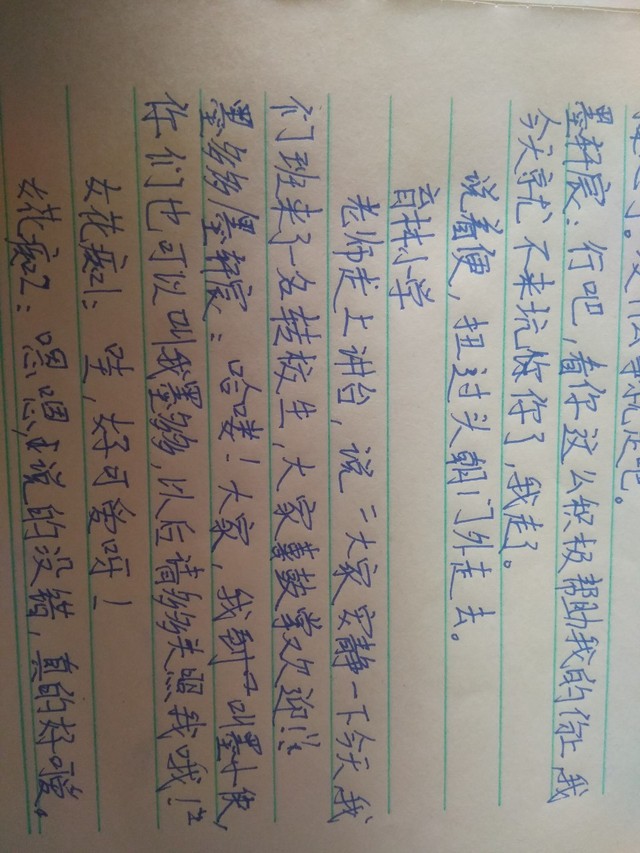 了。没什么事就走吧。
墨轩宸：行吧，看你这么积极帮助我的份上我
今天就不来坑你了，我走了。
说着便，扭过头朝门外走去。
育林小学
老师走上讲台，说："大家安静一下今天我
们班来了一名转校生，大家鼓掌欢迎！"
墨多多/墨轩宸：哈喽！大家，我叫墨小侠，
你们也可以叫我墨多多，以后请多多关照我哦！"
女花痴1：哇，好可爱呀！
女花痴2：嗯嗯，说的没错，真的好可爱。